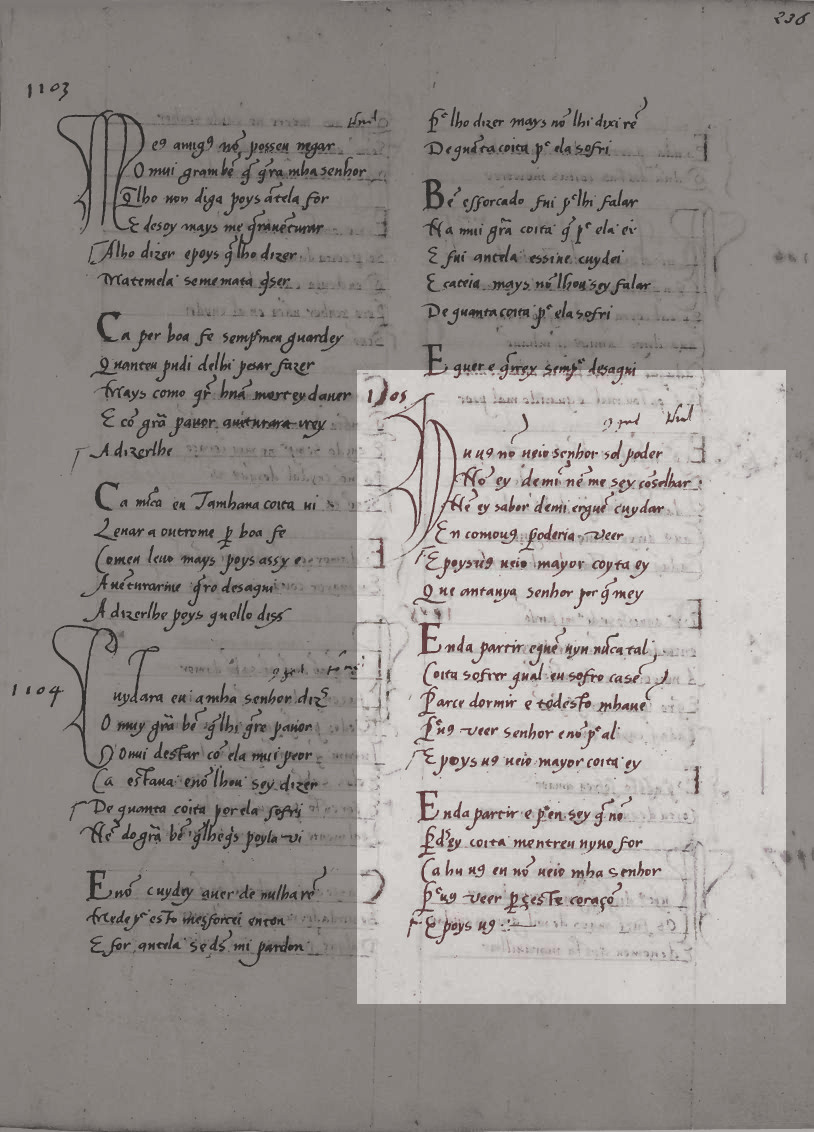 236
1103
Meꝯ amigꝯ nõ posseu negar
O mui gram bẽ q̃ q̃ra mha senhor
Q̃lho non diga poys ãtela for
E desoy mays me q̃rauẽturar
Alho dizer epoys q̃lho dizer
Matemela sememata q̃ser
Ca per boa fe sempr̃meu guardey
Quanteu pudi delhi pesar fazer
Mays como q̃r hũa mortey dauer
E cõ grã pauor auẽturara vrey
A dizerlhe
Ca nũca eu Tamhana coita ui
Leuar a outrome p̱ boa fe
Comeu leuo mays poys assy e
Auẽturarme q̃ro desaqui
A dizerlhe poys quello diss
1104
Cuydara eu amha senhor diz̃
O muy grã bẽ q̃lhi q̃re pauor
Ouui destar cõ ela mui peor
Ca estaua enõ lhou sey dizer
De quanta coita por ela sofrij
Nẽ do grã bẽ q̃lheq̃s poyla vi
Enõ cuydey auer de nulha rẽ
Mede pᵉ esto mesforcei enton
E for antela se ds̃ mi pardon
Pᵉ lho dizer mays nõ lhi dixi rẽ
De quãta coita pᵉ ela sofri
Bẽ esforcado fui pᵉ lhi falar
Na mui grã coita q̃ pᵉ ela ei
E fui antela essine cuydei
E cateia mays nõ lhou sey falar
De quanta coita pᵉ ela sofri
E quer e q̃rrey sempᵉ desaqui
1105
Quꝯ uꝯ nõ ueio senhor sol poder
Nõ ey demĩ nẽ me sey cõselhar
Nẽ ey sabor demi erguẽ cuydar
En comouꝯ poderia veer
E poysuꝯ ueio mayor coyta ey
Que antanya senhor por q̃ mey
Enda partir equẽ uyu nũca tal
Coita sofrer qual eu sofro ca sẽ
Parce dormir e todesto mhauẽ
Pᵉ uꝯ veer senhor enõ pᵉ al
E poys uꝯ ueio mayor coita ey
Enda partir e pᵉ en sey q̃ nõ
P̱d̃ey coita mentreu uyuo for
Ca hu uꝯ eu nõ ueio mha senhor
Pᵉ uꝯ veer p̱ç este coraçõ
E poys uꝯ